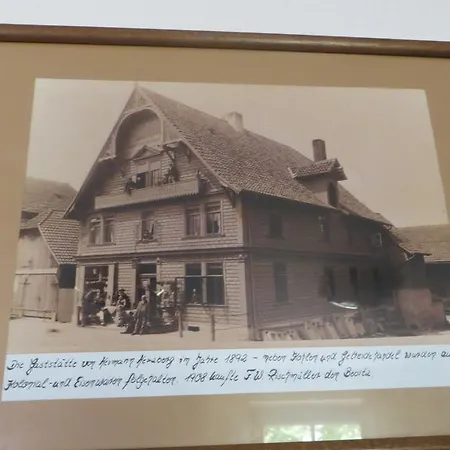 Die Gaststätte von Hermann Hersberg im Jahre 1892 - neben Kohlen und Getreidehandel wurden au
Kolonial- und Eisenwaren feilgehalten. 1908 kaufte F.W. Rischmüller den Besitz.